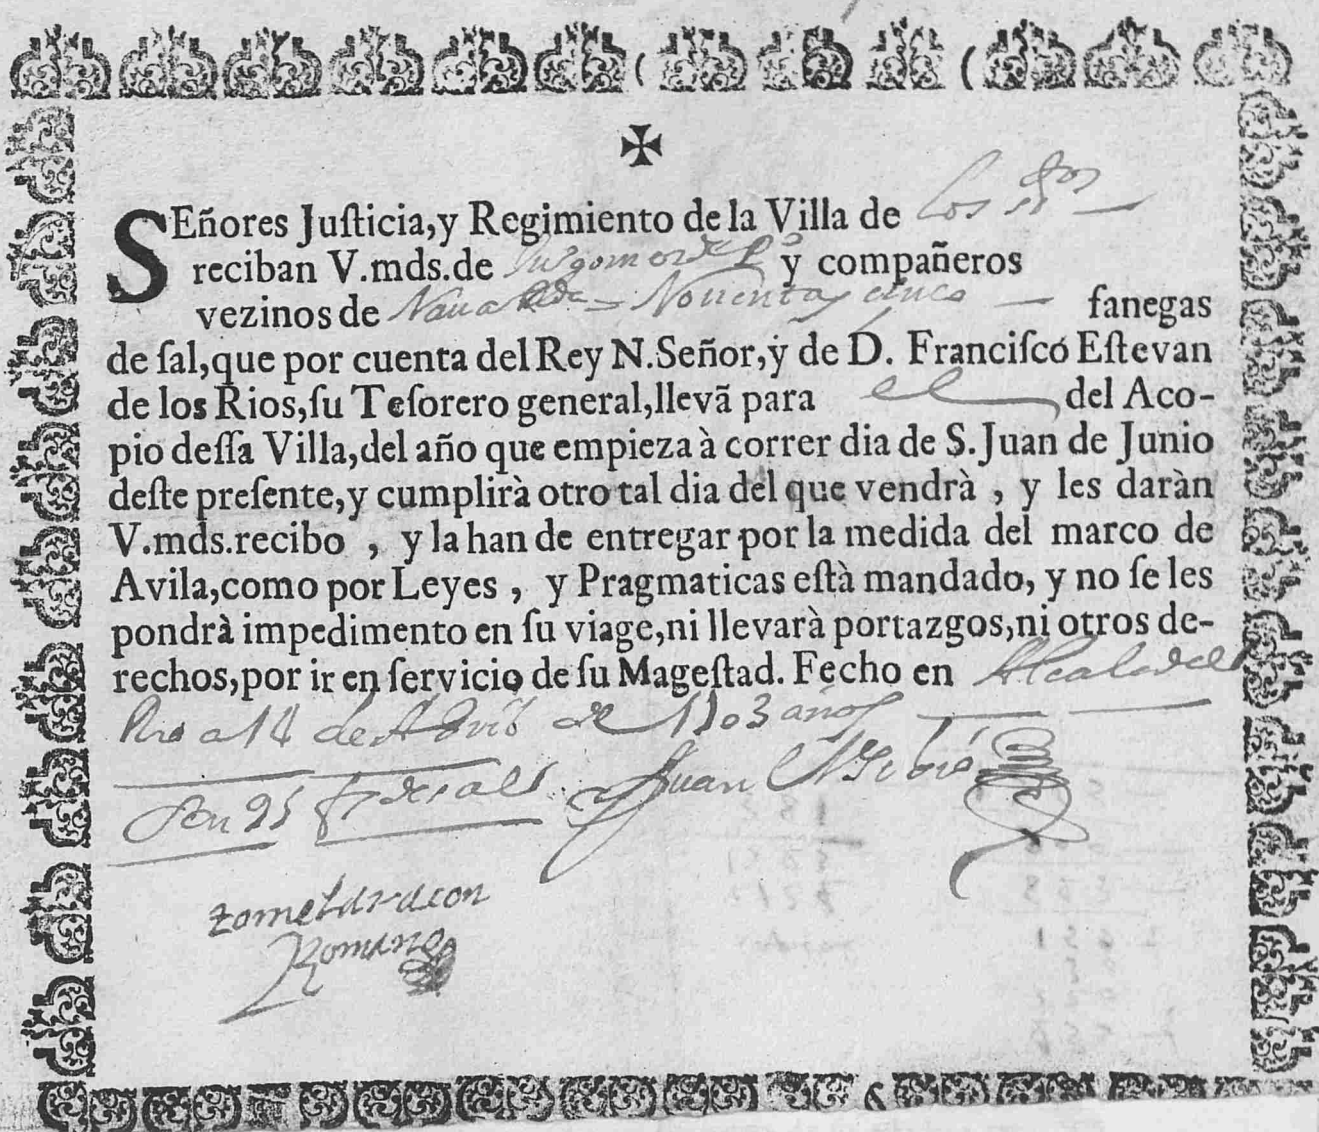 ✠
SEñores Juſticia,y Regimiento de la Villa de Los
reciban V.mds.de y compañeros
vezinos de Nouenta y cinco fanegas
de ſal,que por cuenta del Rey N.Señor,y de D. Franciſcó Eſtevan
de los Rios,ſu Teſorero general,llevã para el del Aco-
pio deſſa Villa,del año que empieza à correr dia de S.Juan de Junio
deſte preſente,y cumplirà otro tal dia del que vendrà , y les daràn
V.mds.recibo , y la han de entregar por la medida del marco de
Avila,como por Leyes , y Pragmaticas eſtà mandado, y no ſe les
pondrà impedimento en ſu viage,ni llevarà portazgos,ni otros de-
rechos,por ir en ſervicio de ſu Mageſtad. Fecho en Alcala del
Rio a 14 de Abril de 1703 años
Son 95 de sal Juan
Romano